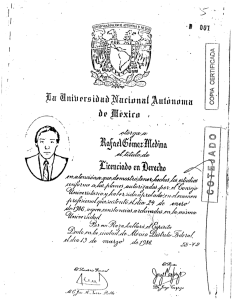 087
COPIA CERTIFICADA
La Universidad Nacional Autónoma
de México
otorga a
Rafael Gómez Medina
el título de
Licenciado en Derecho
en atención a que demostró tener hechos los estudios
conforme a los planes autorizados por el Consejo
Universitario y haber sido aprobado en el examen
profesional que sustentó el día 24 de enero
de 1986, según constancias archivadas en la misma
Universidad.
Por mi Raza hablará el Espíritu
Dado en la ciudad de México Distrito Federal,
el día 13 de marzo de 1986.
COTEJADO
El Rector